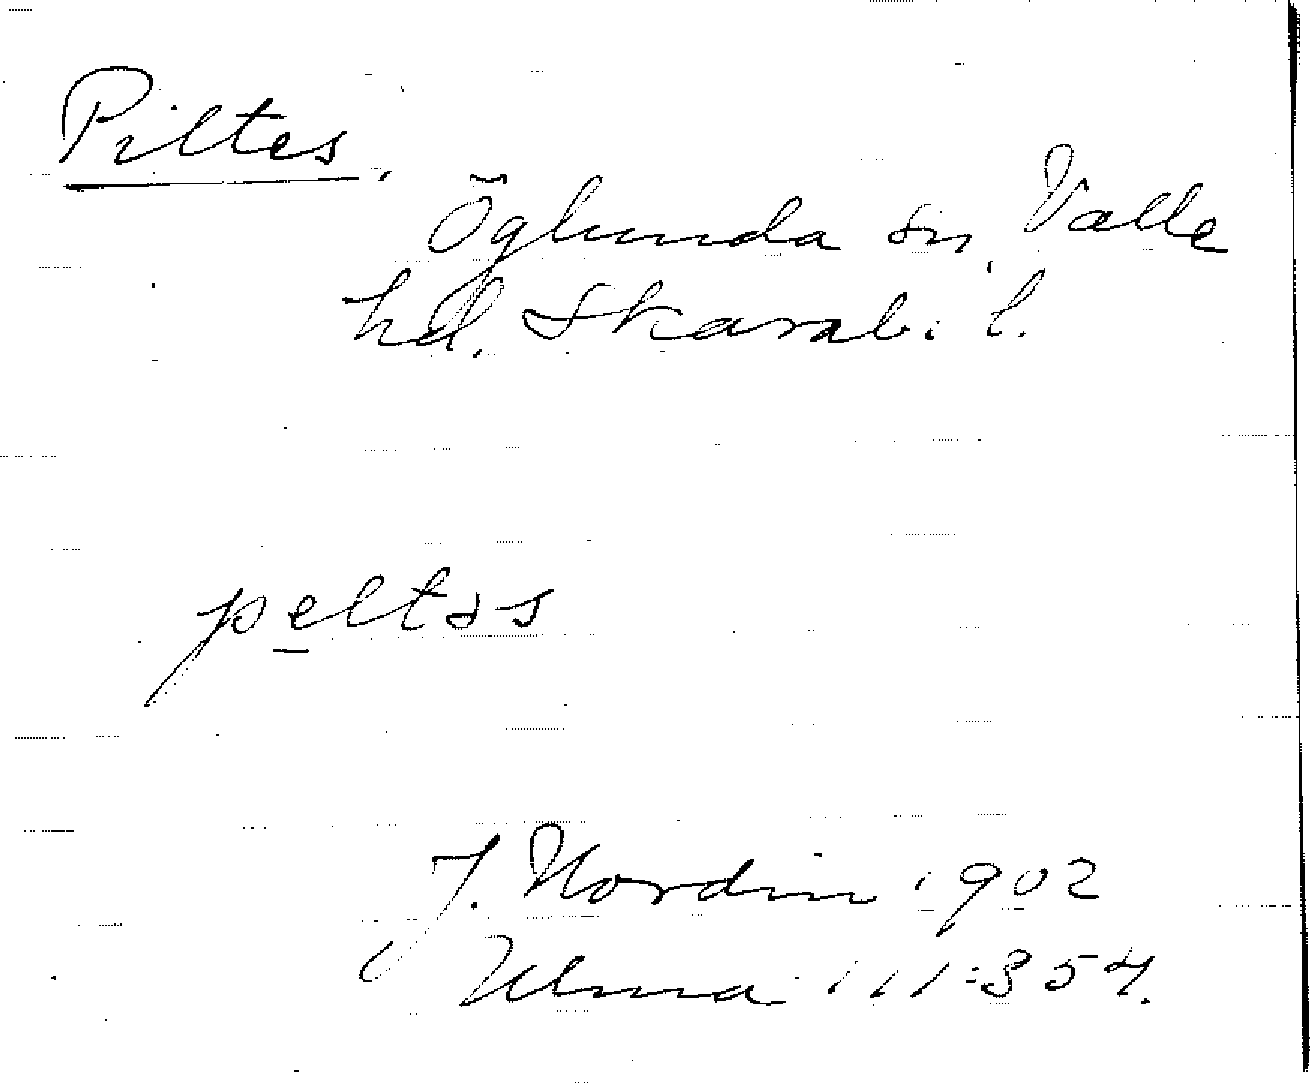 Piltes.
Öglunda sn, Valle
hd. Skarab. l.
peltəs
J. Nordin 1902
Ulma 111:354.